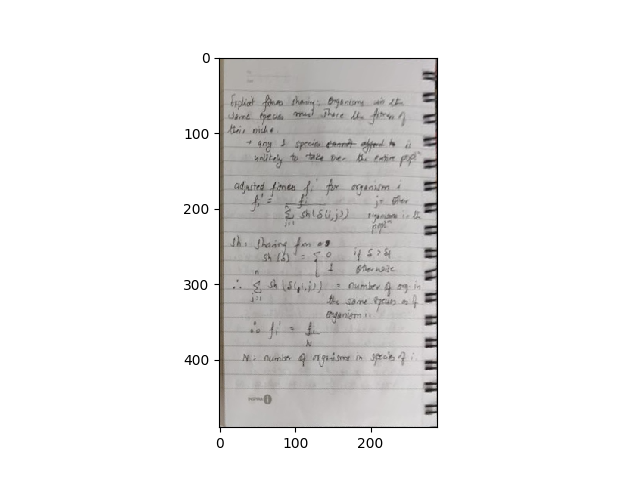 Explicit fitness sharing: Organisms in the
same species must share the fitness of
their niche
→ any 1 species cannot afford to is
unlikely to take over the entire popln
adjusted fitness fi' for organism i
fi' = fi j: other
Σ sh(δ(i,j)) organisms in the
j=1 popln
sh: sharing fxn
sh(δ) = { 0 if δ > δt
1 otherwise
∴ n Σ j=1 sh(δ(i,j)) = number of org. in
the same species as of
organism i.
fi' = fi
N
N: number of organisms in species of i.
0
100
200
300
400
0 100 200